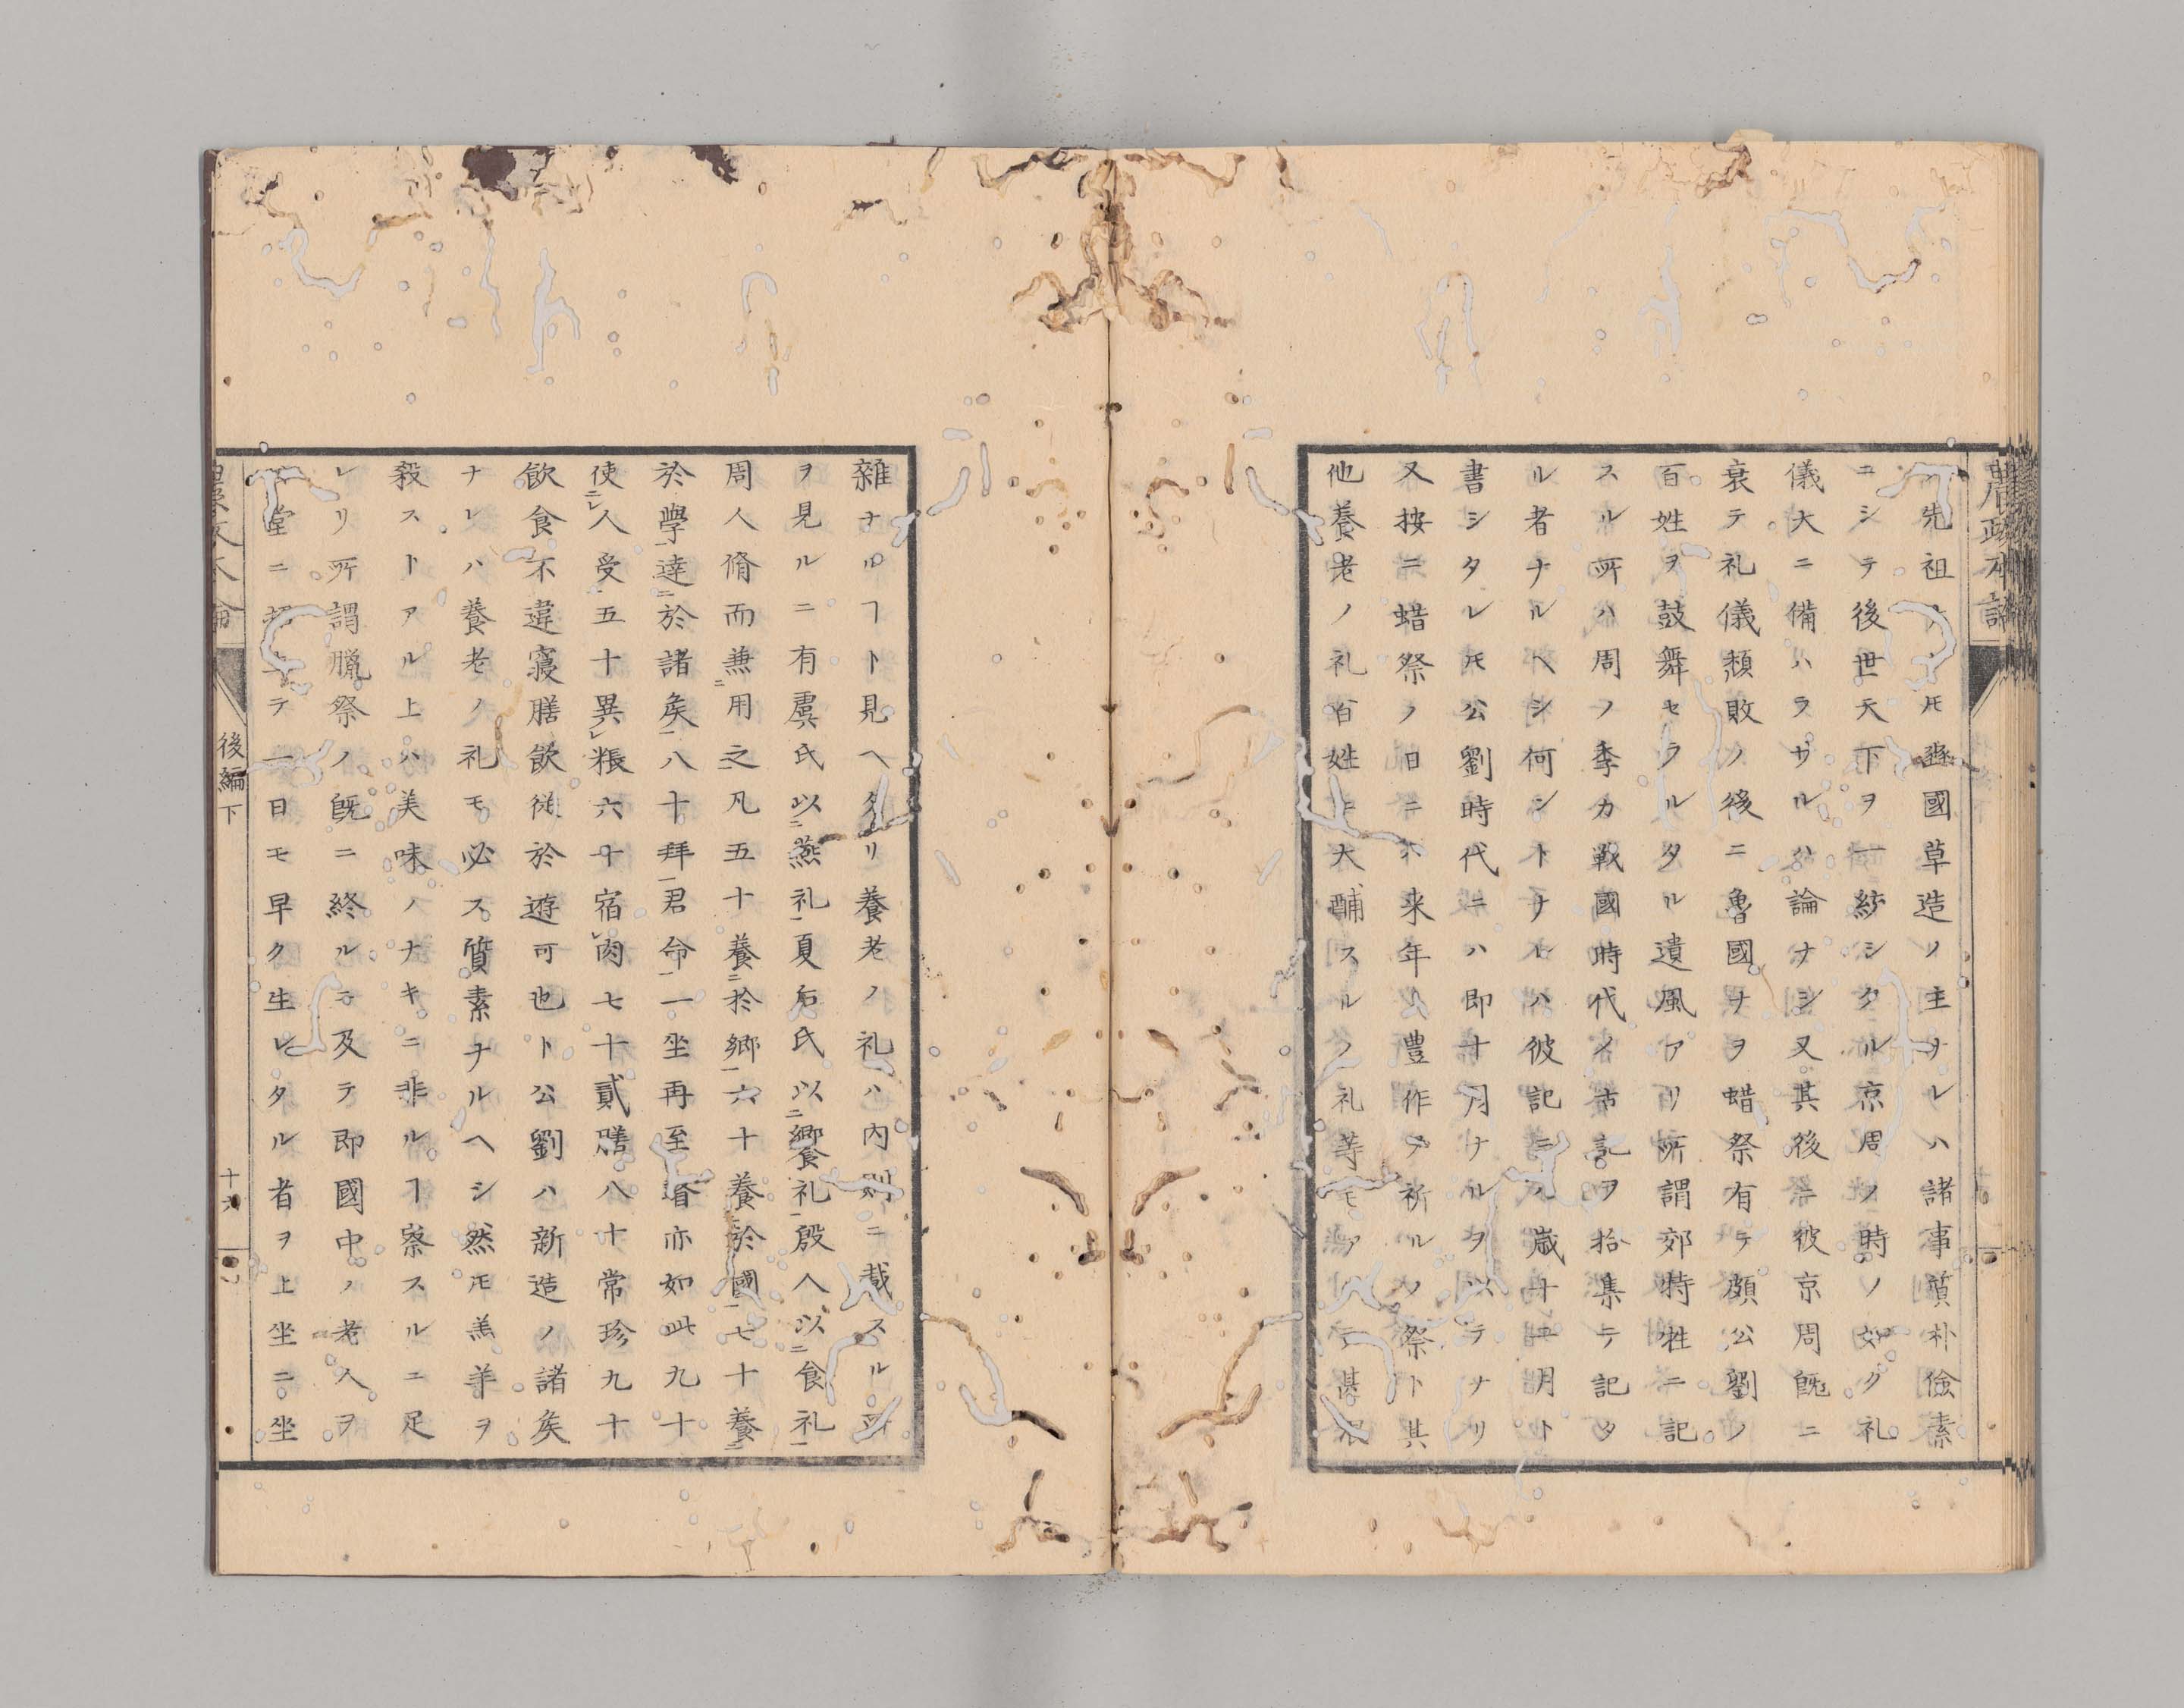 農政本論
先祖ノ𪜈豳國草造ノ主ナレハ諸事質朴儉素
ニシテ後世天下ヲ一統シタル京周ノ時ノ如ク礼
儀大ニ備ハラサルハ論ナシ又其後彼京周既ニ
衰テ礼儀頽敗ノ後ニ魯國ナヲ蜡祭有テ頗公劉ノ
百姓ヲ鼓舞セラルタル遺風アリ所謂郊特牲ニ記
スル所ハ周ノ季カ戰國時代ノ書記ヲ拾集テ記タ
ル者ナルヘシ何ントナルハ彼記ニハ歳十二月ト
書シタレ𪜈公劉時代ニハ即十月ナルヲ以テナリ
又按ニ蜡祭ノ日ニハ来年ノ豊作ヲ祈ルノ祭ト其
他養老ノ礼百姓ト大酺スルノ礼等モアリテ甚混
雜ナルヿト見ヘタリ養老ノ礼ハ内則ニ載スル所
ヲ見ルニ有虞氏以燕礼夏后氏以饗礼殷人以食礼
周人脩而兼用之凡五十養於郷六十養於國七十養
於學達於諸矦八十拜君命一坐再至瞽亦如此九十
使人受五十異粻六十宿肉七十貳膳八十常珍九十
飲食不違寢膳飲從於遊可也ト公劉ハ新造ノ諸矦
ナレハ養老ノ礼モ必ス質素ナルヘシ然𪜈羔羊ヲ
殺ストアル上ハ美味ノナキニ非ルヿ察スルニ足
レリ所謂臘祭ノ既ニ終ルニ及テ即國中ノ老人ヲ
堂ニ テ一日モ早ク生レタル者ヲ上坐ニ坐
後編下
十六